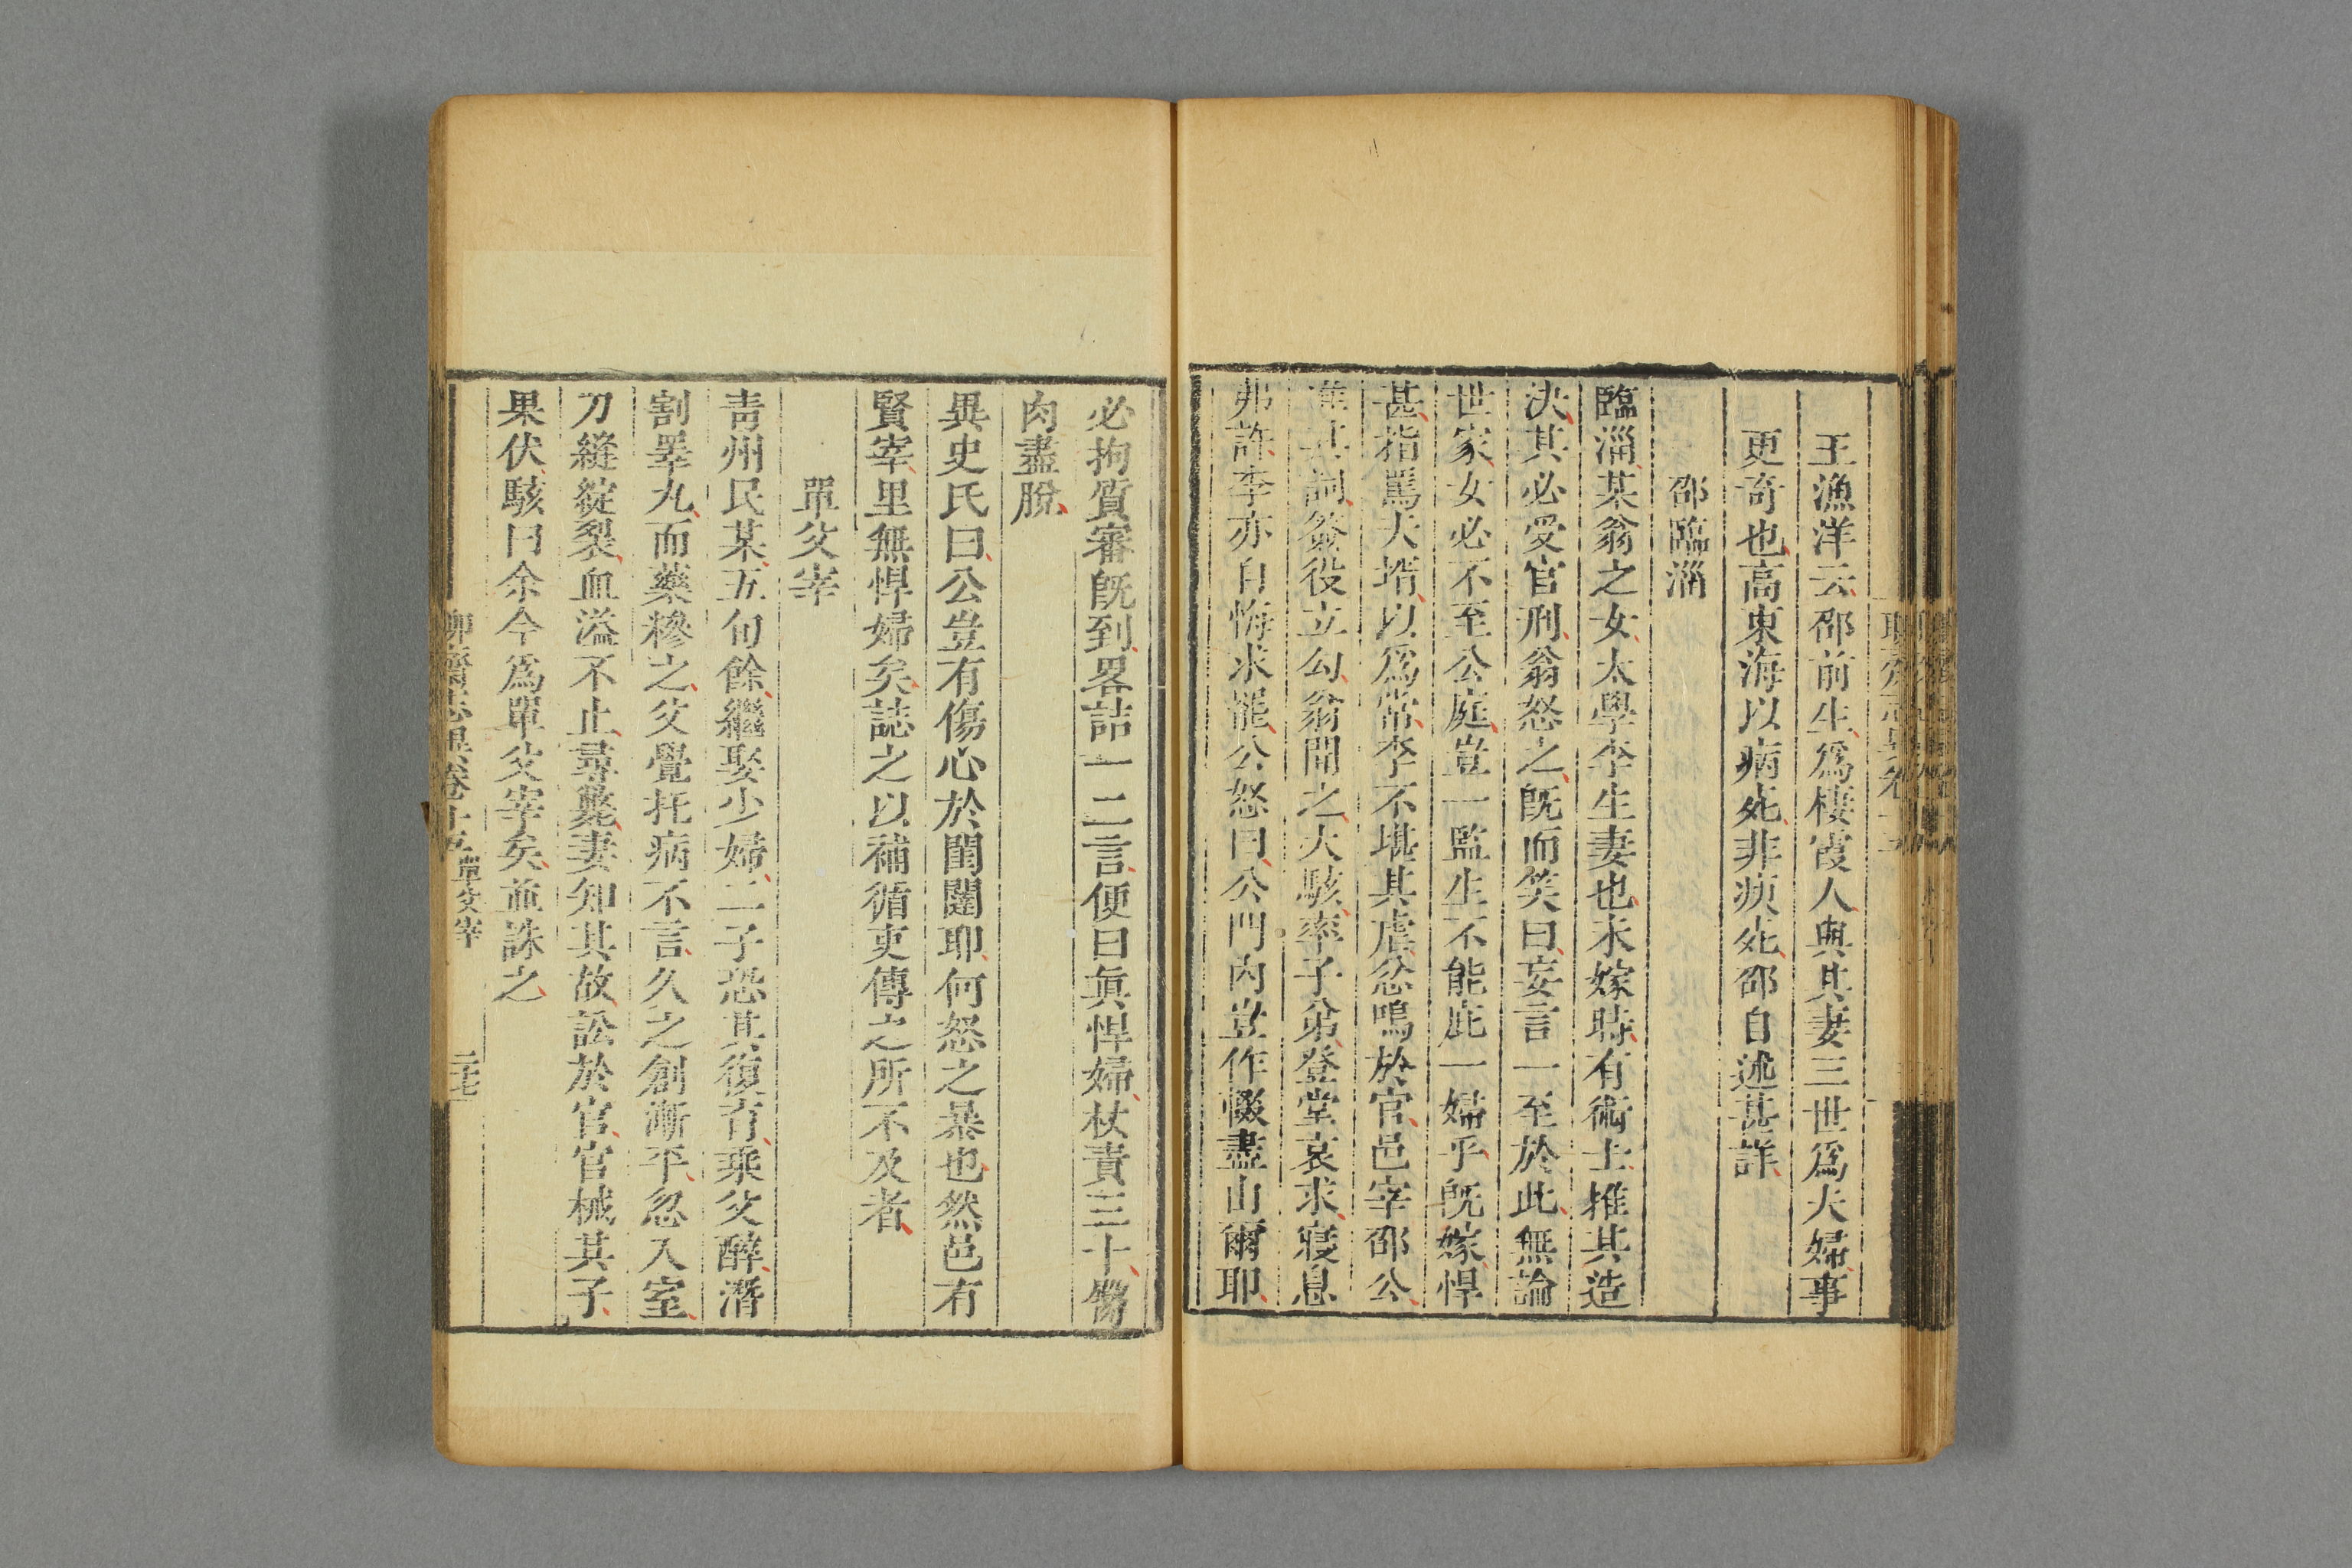 王漁洋云邵前生爲棲霞人與其妻三世爲夫婦事
更奇也高東海以病死非瘐死邵自述甚詳
邵臨淄
臨淄某翁之女太學李生妻也未嫁時有術士推其造
決其必受官刑翁怒之既而笑曰妄言一至於此無論
世家女必不至公庭豈一監生不能庇一婦乎既嫁悍
甚指罵夫壻以爲常李不堪其虐忿鳴於官邑宰邵公
准其詞簽役立勾翁聞之大駭率子弟登堂哀求寢息
弗許李亦自悔求罷公怒曰公門內豈作輟盡由爾耶
必拘質審既到畧詰一二言便曰眞悍婦杖責三十臀
肉盡脫
異史氏曰公豈有傷心於閨闥耶何怒之暴也然邑有
賢宰里無悍婦矣誌之以補循吏傳之所不及者
單父宰
青州民某五旬餘繼娶少婦二子恐其復育乘父醉潛
割睾丸而藥糝之父覺托病不言久之創漸平忽入室
刀縫綻裂血溢不止尋斃妻知其故訟於官官械其子
果伏駭曰余今爲單父宰矣並誅之
聊齋志異卷十五 單父宰 三十七